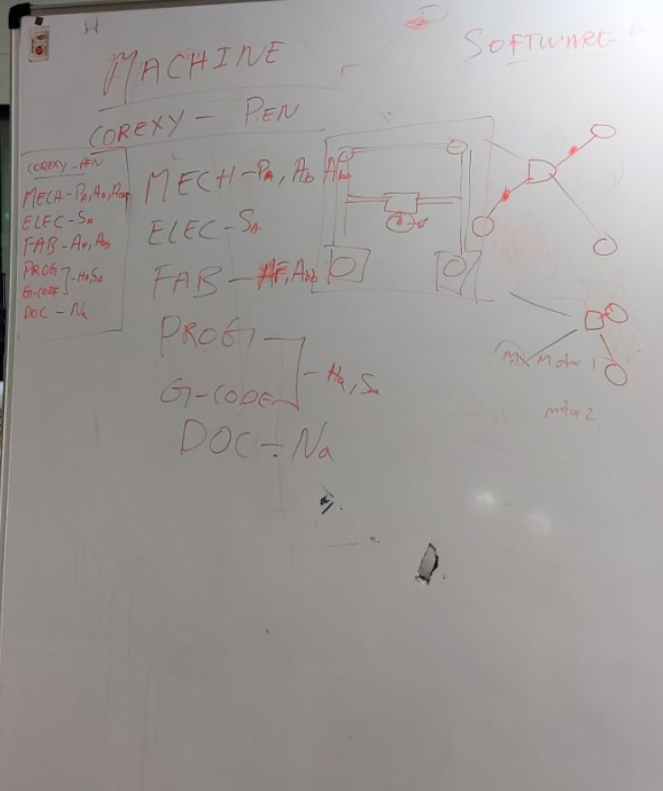 MACHINE
SOFTWARE
COREXY - PEN
MECH - PA, Ab
ELEC - SA
FAB - AF, Ab
PROG
G-CODE
- Ha, Sa
DOC - Na
COREXY - PEN
MECH - Pa, Ab,
ELEC - SA
FAB -
PROG
G-CODE
- Ha, Sa
DOC - Na
Motor 1
motor 2